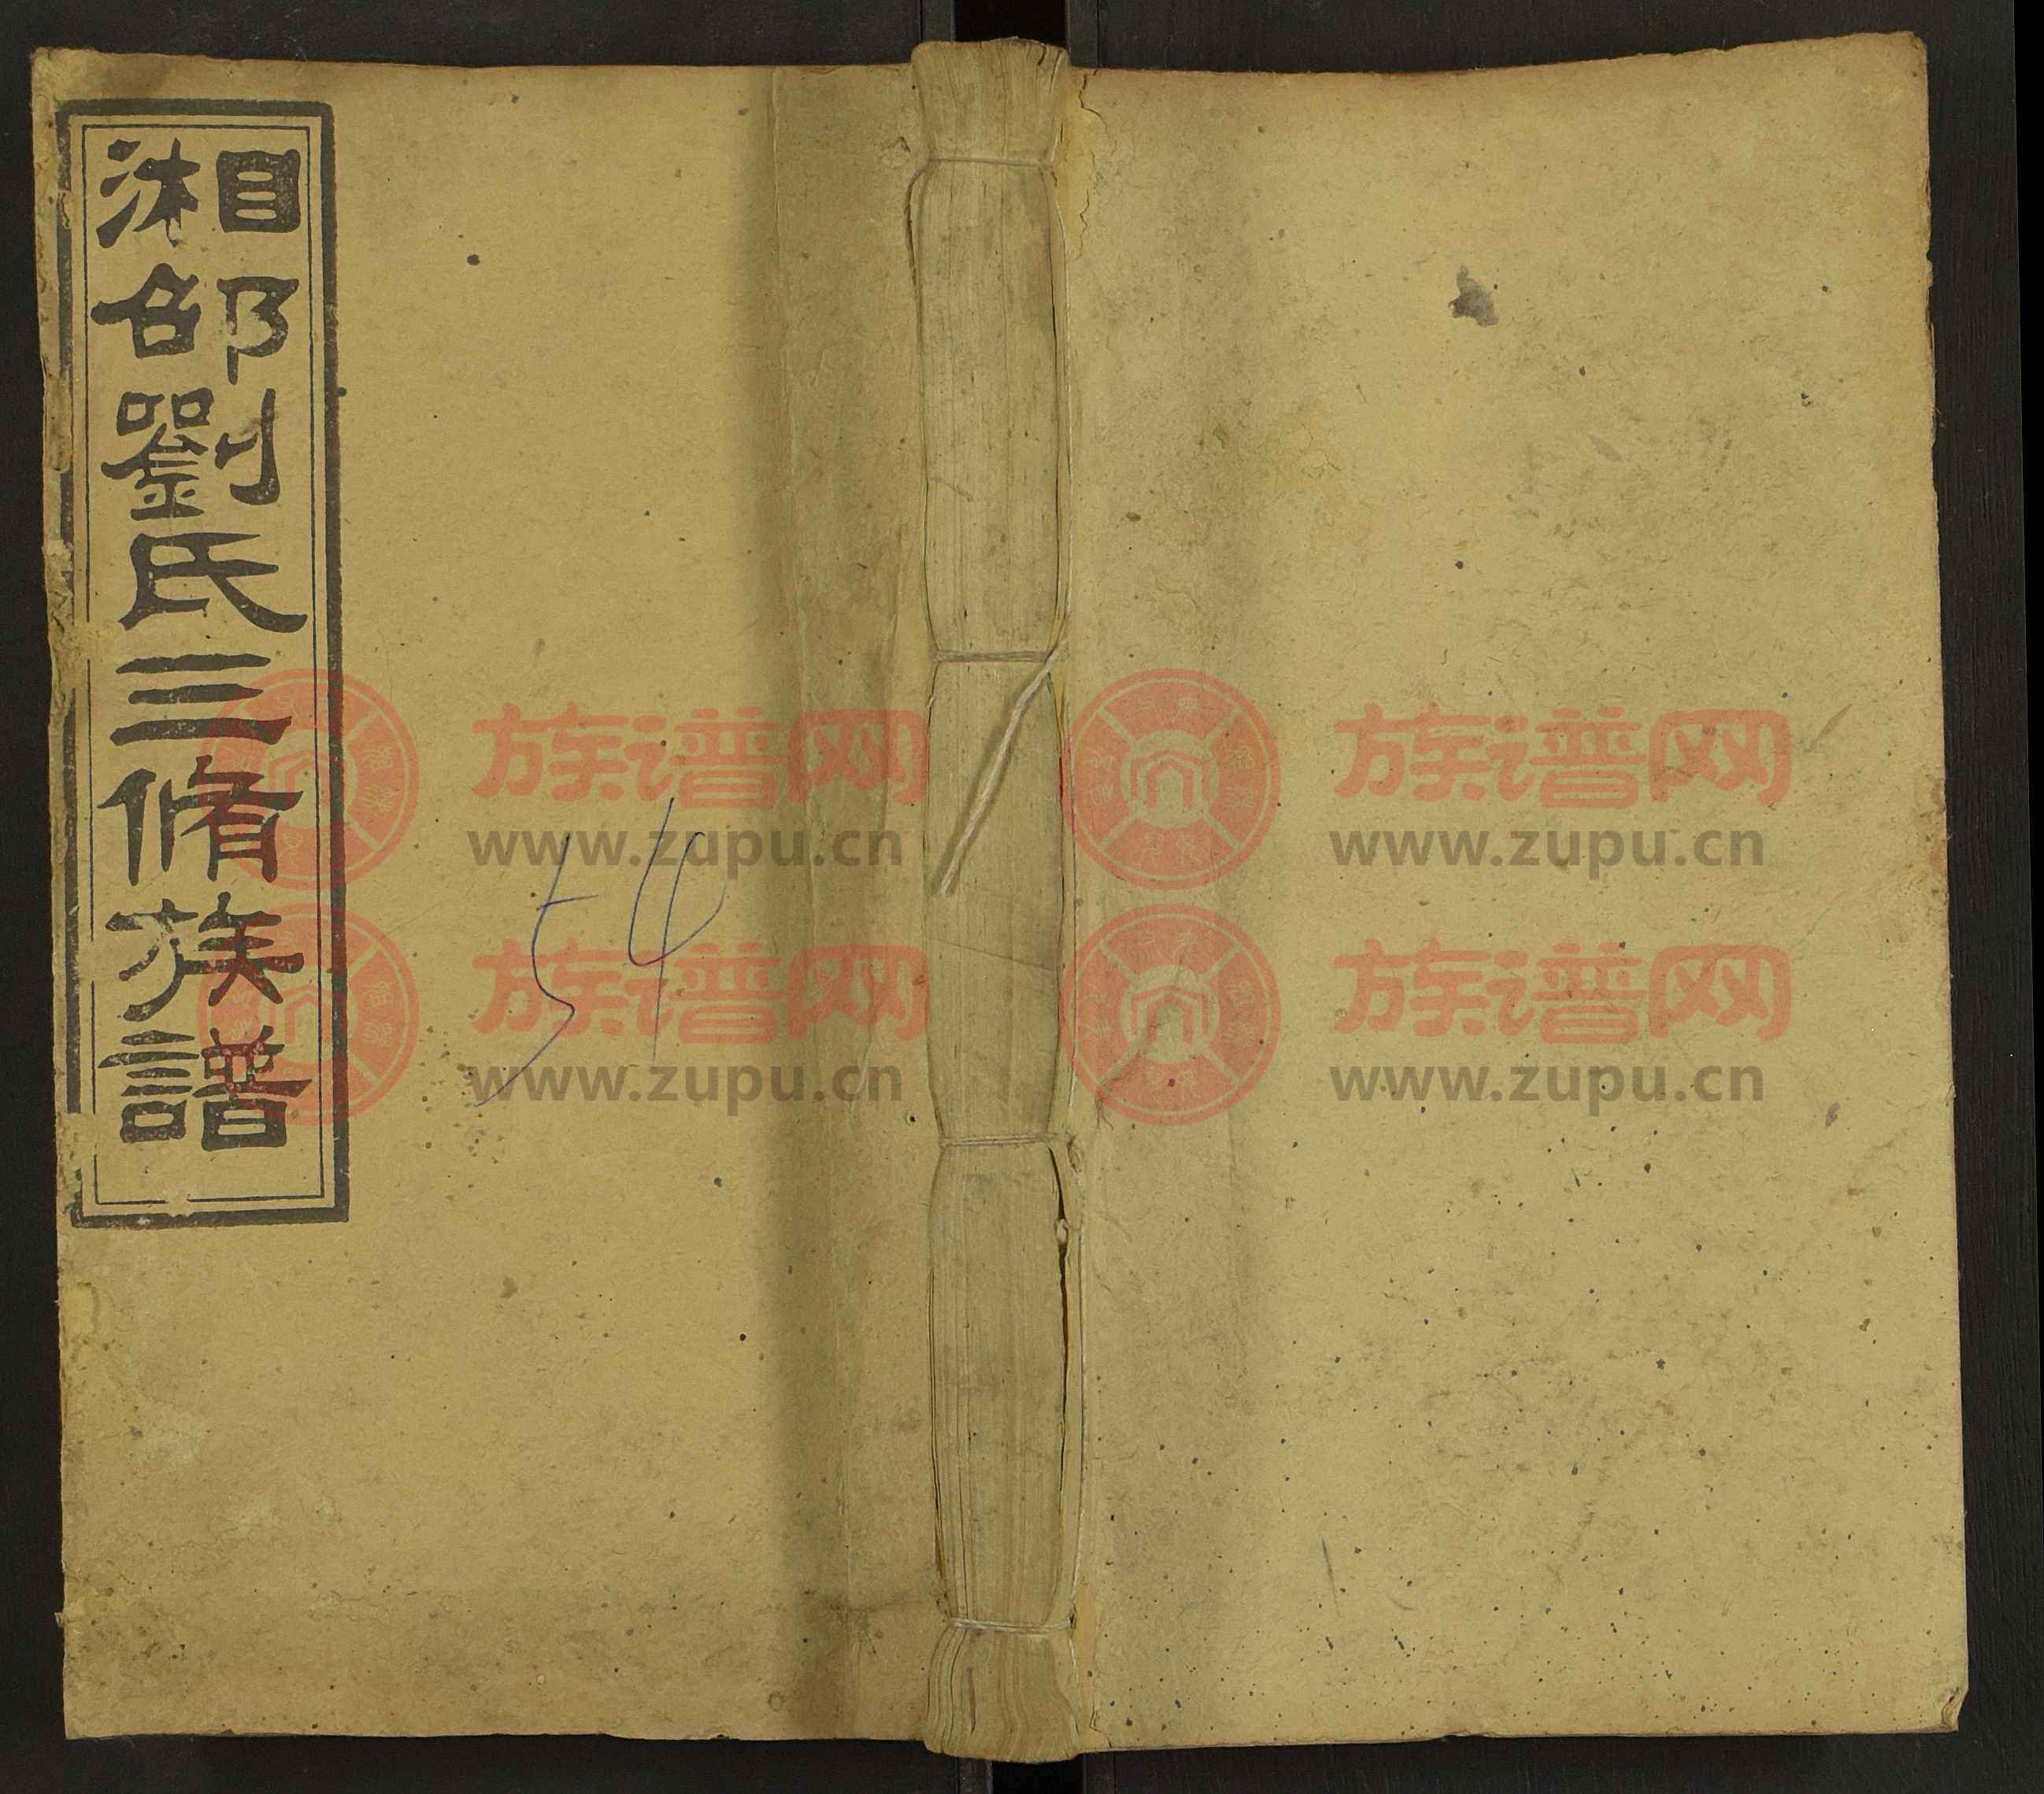 湘邵劉氏三脩族譜
54
族谱网 族谱网
www.zupu.cn www.zupu.cn
族谱网 族谱网
www.zupu.cn www.zupu.cn